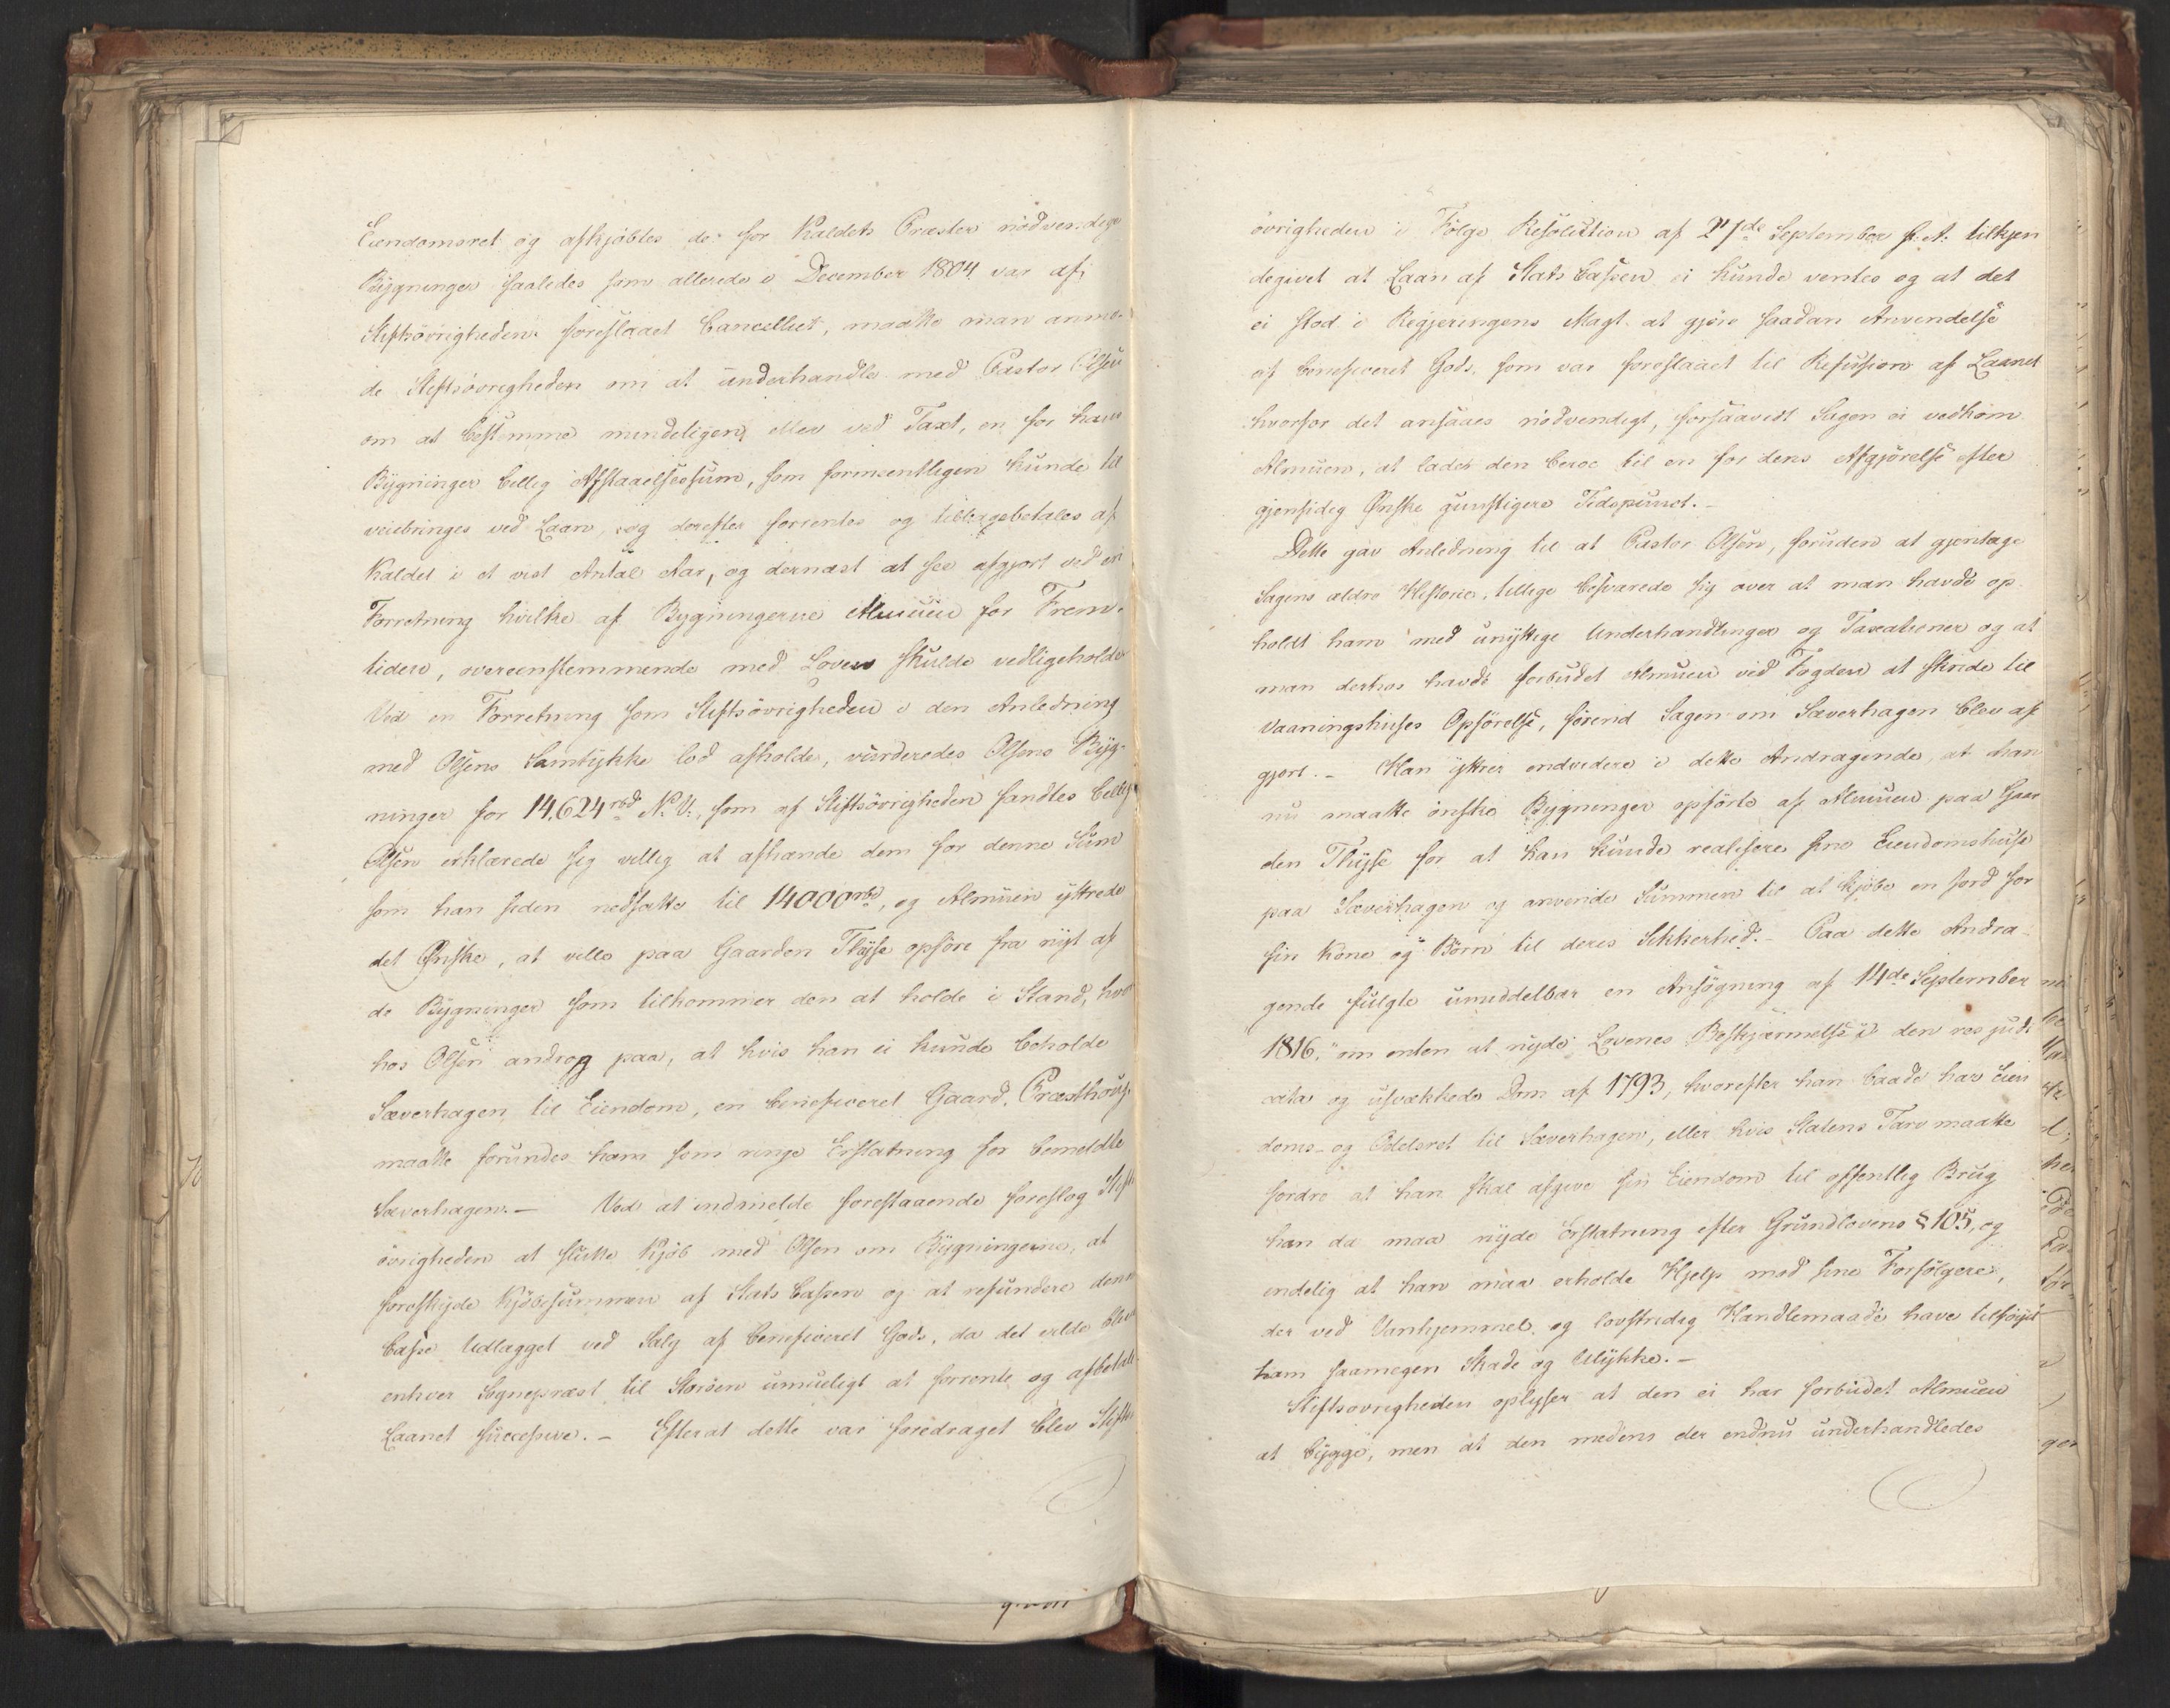 Eiendomsret og afkjöbtes de for Kaldets Præster nödvendige
Bygninger saaledes som allerede i December 1804 var af
Stiftsövrigheden foreslaaet Cancelliet, maatte man anmo-
de Stiftsövrigheden om at underhandle med Pastor Olsen
om at bestemme mindeligen eller ved Taxt, en for hans
Bygninger billig Afstaaelsessum, som formeentligen kunde til
veiebringes ved Laan, og derefter forrentes og tilbagebetales af
Kaldet i et vist Antal Aar, og dernæst at see afgjort ved en
Forretning hvilke af Bygningerne Almuen for Frem-
tiden, overeenstemmende med Loven skulde vedligeholde
Ved en Forretning som Stiftsövrigheden i den Anledning
med Olsens Samtykke lod afholde, vurderedes Olsens Byg-
ninger for 14,624 rbd. N. V., som af Stiftsövrigheden fandtes billig
Olsen erklærede sig villig at afhænde dem for denne Sum
som han siden nedsatte til 14000 rbd, og Almuen yttrede
det Ønske, at ville paa Gaarden Flyse opföre fra nyt af
de Bygninger som tilkommer den at holde i Stand, hvor
hos Olsen androg paa, at hvis han ei kunde beholde
Sæverhagen til Eiendom, en beneficeret Gaard, Præsthoug,
maatte forundes ham som ringe Erstatning for bemeldte
Sæverhagen. – Ved at indmelde forestaaende foreslog Stifts
övrigheden at slutte Kjöb med Olsen om Bygningerne, at
forskyde Kjöbesummen af Stats Cassen og at refundere denne
Casse Udlægget ved Salg af beneficeret Gods, da det vilde blive
enhver Sognepræst til Storöen umueligt at forrente og afbetale
Laanet successive. – Efterat dette var foredraget blev Stifts
övrigheden i Fölge Resolution af 27de September f. A. tilkjen
degivet at Laan af Stats Cassen ei kunde ventes og at det
ei stod i Regjeringens Magt at gjöre saadan Anvendelse
af beneficeret Gods, som var foreslaaet til Refusion af Laanet
hvorfor det ansaaes nödvendigt, forsaavidt Sagen ei vedkom
Almuen, at lade den beroe til en for dens Afgjörelse efter
gjensidig Ønske gunstigere Tidspunct. –
Dette gav Anledning til at Pastor Olsen, foruden at gjentage
Sagens ældre Historie, tillige besværede sig over at man havde op
holdt ham med unyttige Underhandlinger og Taxationer og at
man derhos havde forbudet Almuen ved Fogden at skride til
Vaaningshuses Opförelse, förend Sagen om Sæverhagen blev af
gjort. – Han yttrer endvidere i dette Andragende, at han
nu maatte önske Bygninger opförte af Almuen paa Gaar
den Flyse for at han kunde realisere sine Eiendomshuse
paa Sæverhagen og anvende Summen til at kjöbe en Jord for
sin Kone og Börn til deres Sikkerhed. – Paa dette Andra-
gende fulgte umiddelbar en Ansögning af 14de September
1816, "om enten at nyde Lovenes Beskjærmelse i den res judi
cata og usvækkede Dom af 1793, hvorefter han baade har Eien
doms- og Odelsret til Sæverhagen, eller hvis Statens Tarv maatte
fordre at han skal afgive sin Eiendom til offentlig Brug
han da maa nyde Erstatning efter Grundlovens § 105, og
endelig at han maa erholde Hjelp mod sine Forfölgere,
der ved Vanhjemmel og lovstridig Handlemaade have tilföiet
ham saamegen Skade og Ulykke. –
Stiftsovrigheden oplyser at den ei har forbudet Almuen
at bygge, men at den medens der endnu underhandledes